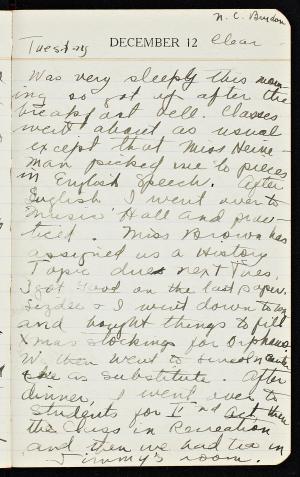 N. C. Burdon
Tuesday DECEMBER 12 Clear
Was very sleepy this morn
ing so got up after the
breakfast bell. Classes
went about as usual
except that Miss Heine-
man picked me to pieces
in English Speech. After
English I went over to
Music Hall and prac-
ticed. Miss Brown has
assigned us a History
Topic due next Tues.
I got Good on the last paper.
& I went down town
and bought things to fill
Xmas stockings for Orphans
We then went to
as substitute. After
dinner, I went over to
Students for II nd Act then
the Chess in Recreation
and then we had tea in
Jimmy's room.